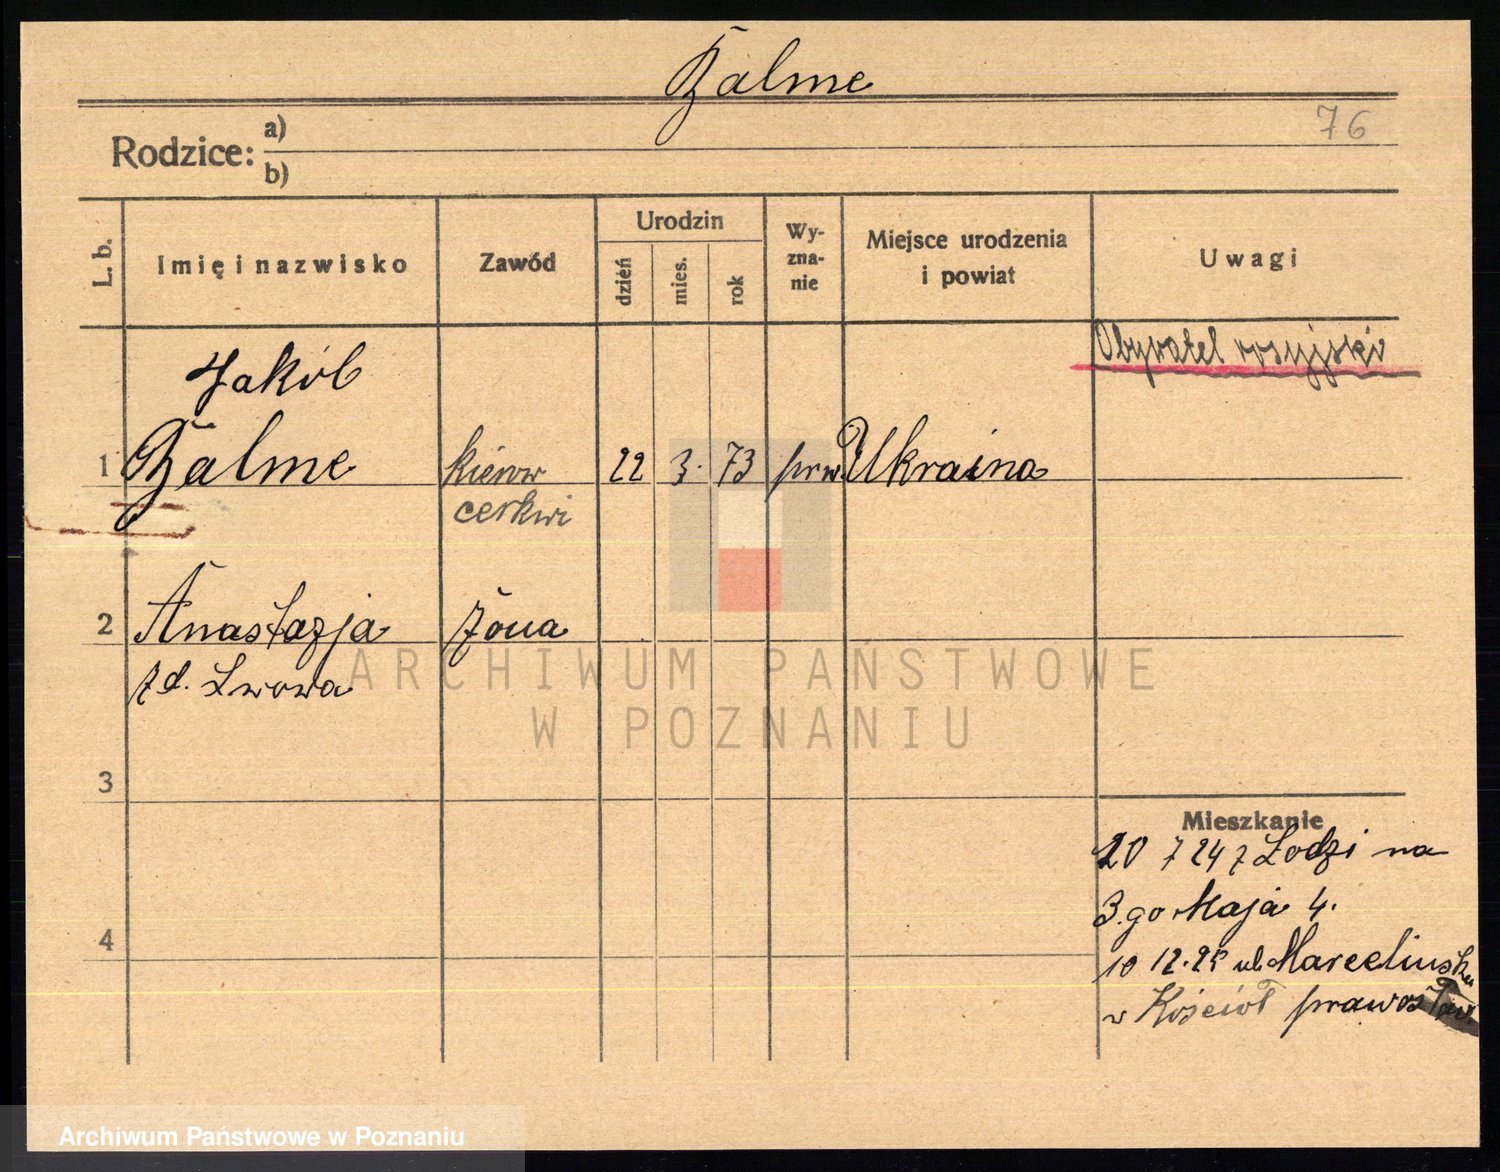 Balme
76
Rodzice: a)
b)
L. b.
Imię i nazwisko
Zawód
Urodzin
dzień
mies.
rok
Wy-
zna-
nie
Miejsce urodzenia
i powiat
Uwagi
Obywatel rosyjski
Jakób
1 Balme kierow 22 3. 73 prw. Ukraina
cerkwi
2 Anastazja żona
z d. Lwowa
ARCHIWUM PAŃSTWOWE
W POZNANIU
3
Mieszkanie
20 7 24 z Łodzi na
3. go Maja 4.
4
10 12. 25 ul. Marcelińska
w Kościół prawosław
Archiwum Państwowe w Poznaniu